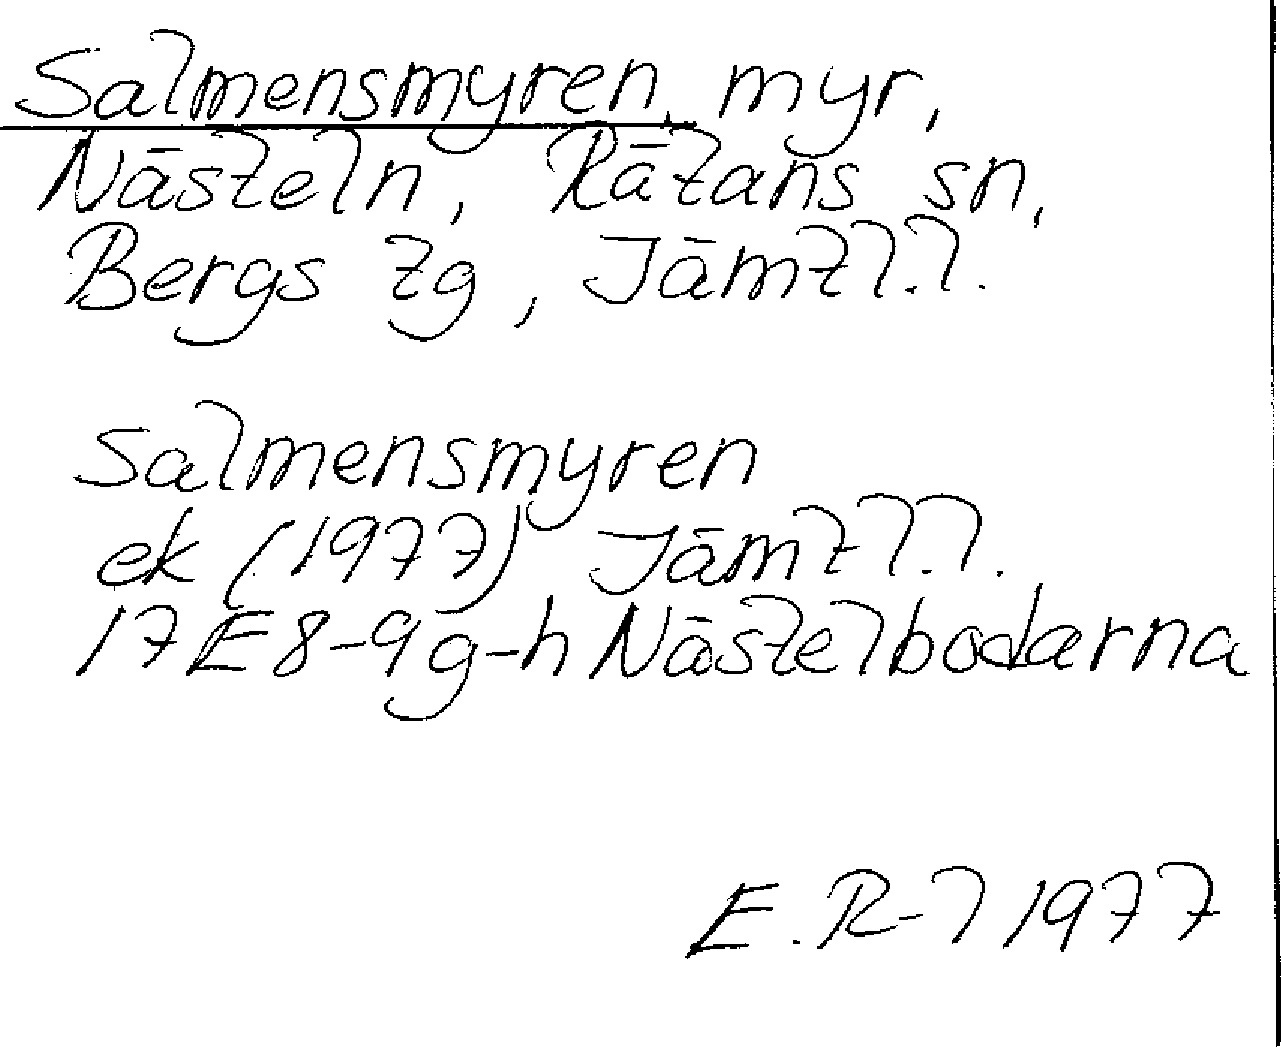 Salmensmyren, myr,
Nästeln, Rätans sn,
Bergs tg, Jämtl.l.
Salmensmyren
ek (1977) Jämtl.l.
17E 8-9 g-h Nästelbodarna
E.R-l 1977